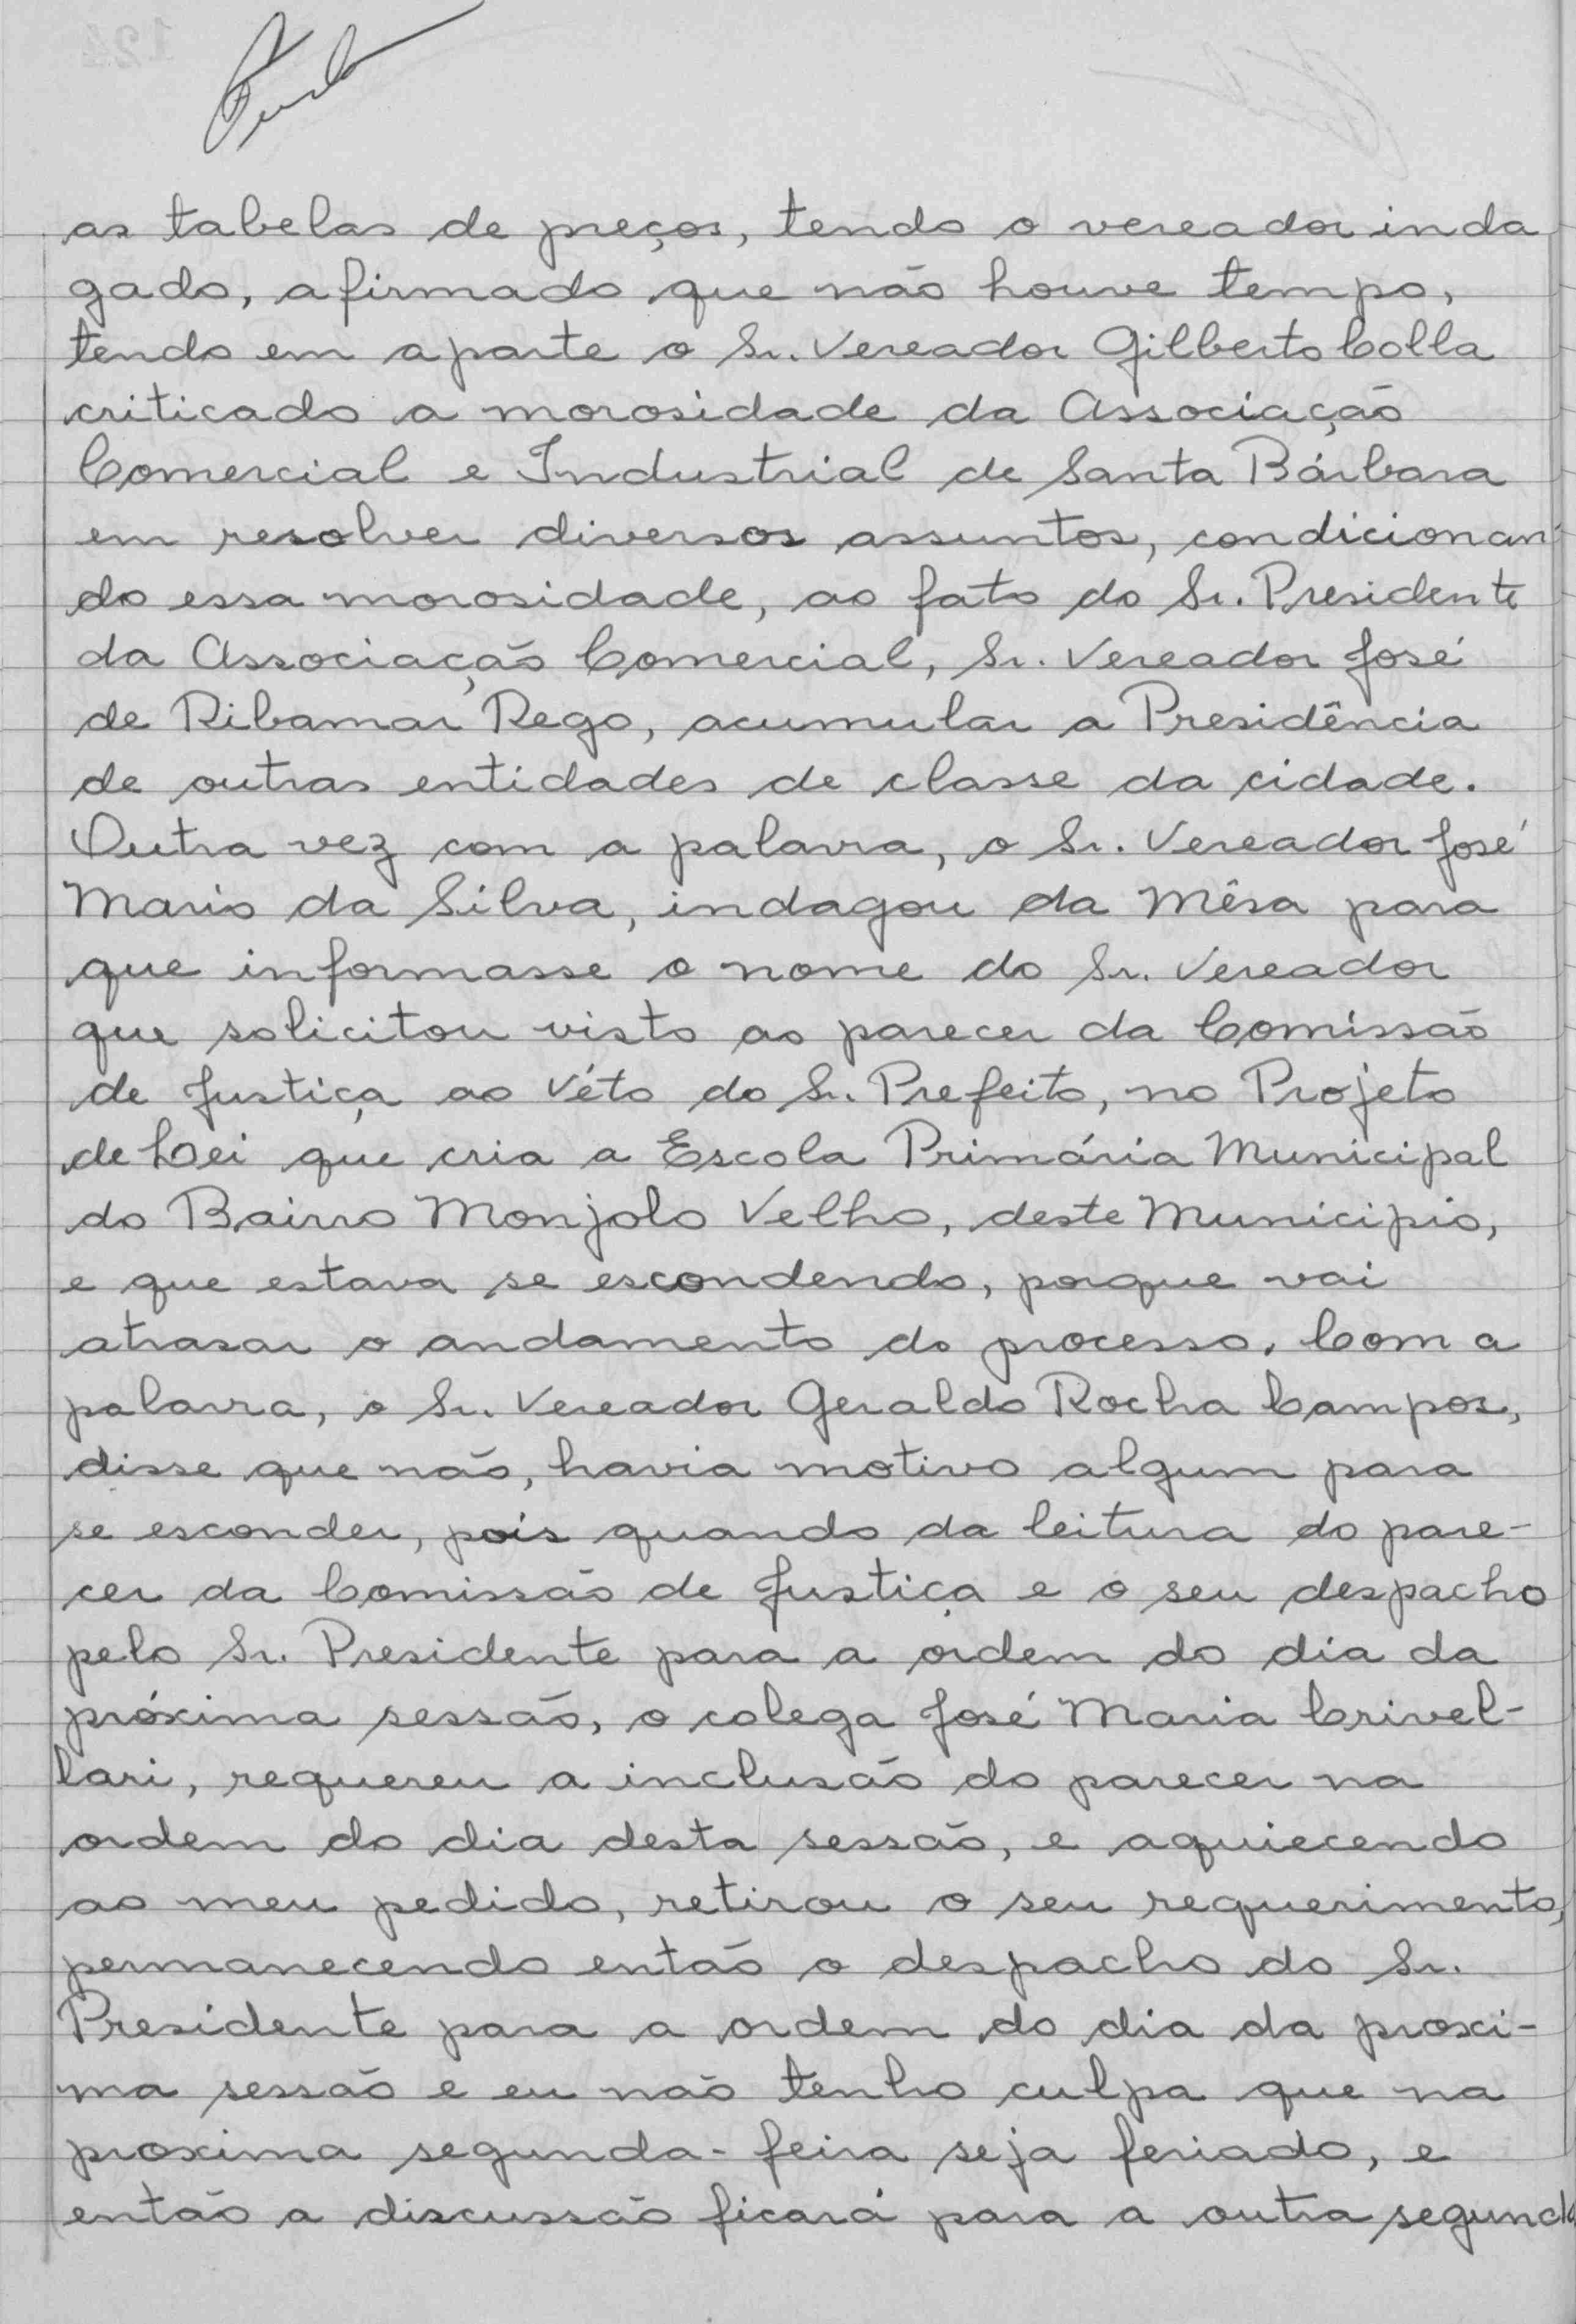 as tabelas de preços, tendo o vereador inda
gado, afirmado que não houve tempo,
tendo em aparte o Sr. Vereador Gilberto Colla
criticado a morosidade da Associação
Comercial e Industrial de Santa Bárbara
em resolver diversos assuntos, condicionan
do essa morosidade, ao fato do Sr. Presidente
da Associação Comercial, Sr. Vereador José
de Ribamar Rego, acumular a Presidência
de outras entidades de classe da cidade.
Outra vez com a palavra, o Sr. Vereador José
Mario da Silva, indagou da Mêsa para
que informasse o nome do Sr. Vereador
que solicitou visto ao parecer da Comissão
de Justiça ao Véto do Sr. Prefeito, no Projeto
de Lei que cria a Escola Primária Municipal
do Bairro Monjolo Velho, deste Municipio,
e que estava se escondendo, porque vai
atrasar o andamento do processo. Com a
palavra, o Sr. Vereador Geraldo Rocha Campos,
disse que não, havia motivo algum para
se esconder, pois quando da leitura do pare-
cer da Comissão de Justiça e o seu despacho
pelo Sr. Presidente para a ordem do dia da
próxima sessão, o colega José Maria Crivel-
lari, requereu a inclusão do parecer na
ordem do dia desta sessão, e aquiecendo
ao meu pedido, retirou o seu requerimento,
permanecendo então o despacho do Sr.
Presidente para a ordem do dia da proxi-
ma sessão e eu não tenho culpa que na
proxima segunda-feira seja feriado, e
então a discussão ficará para a outra segunda